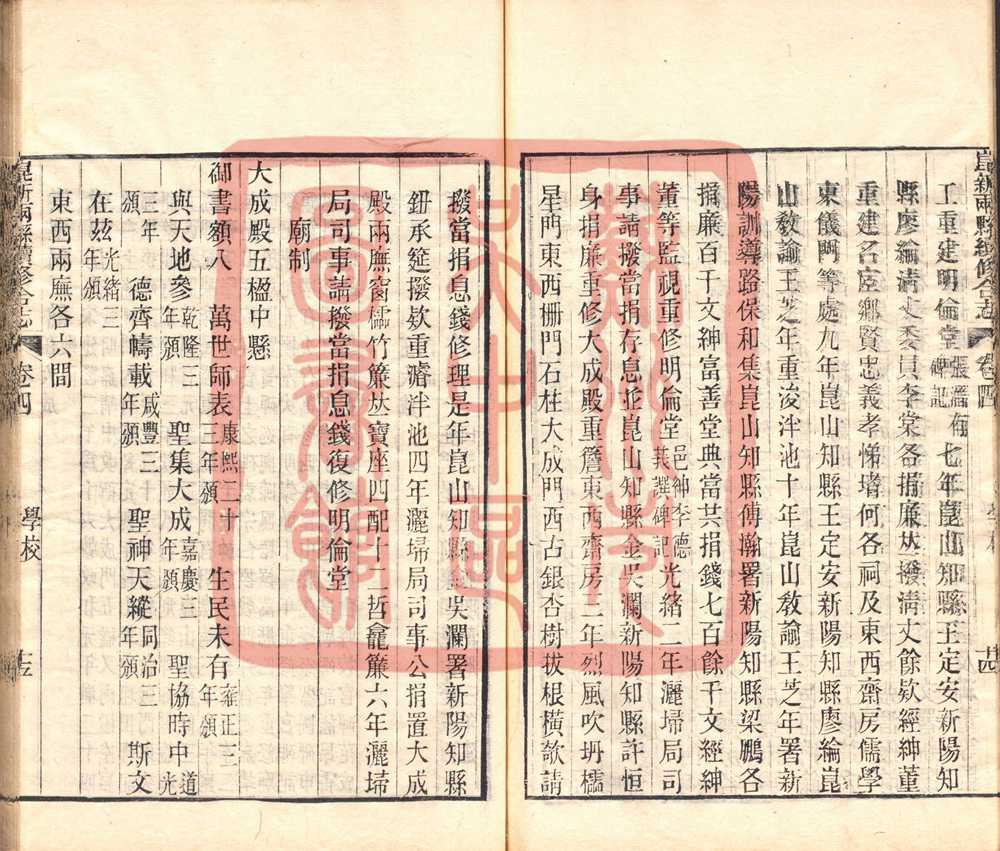 工重建明倫堂張潛有碑記七年崑山知縣王定安新陽知
縣廖綸清丈委員李棠各捐廉並撥清丈餘欵經紳董
重建名宦鄉賢忠義孝悌堵何各祠及東西齋房儒學
東儀門等處九年崑山知縣王定安新陽知縣廖綸崑
山敎諭王芝年重浚泮池十年崑山敎諭王芝年署新
陽訓導路保和集崑山知縣傅瀚署新陽知縣梁鵬各
捐廉百千文紳富善堂典當共捐錢七百餘千文經紳
董等監視重修明倫堂邑紳李德莪撰碑記光緒二年灑埽局司
事請撥當捐存息並崑山知縣金吳瀾新陽知縣許恒
身捐廉重修大成殿重簷東西齋房三年烈風吹坍櫺
星門東西柵門石柱大成門西古銀杏樹拔根橫欹請
崑新兩縣續修合志 卷四 學校 十四
撥當捐息錢修理是年崑山知縣金吳瀾署新陽知縣
鈕承筵撥欵重濬泮池四年灑埽局司事公捐置大成
殿兩廡窗櫺竹簾並寶座四配十二哲龕簾六年灑埽
局司事請撥當捐息錢復修明倫堂
廟制
大成殿五楹中懸
御書額八 萬世師表康熙二十三年頒 生民未有雍正三年頒
與天地參乾隆三年頒 聖集大成嘉慶三年頒 聖協時中道光
三年頒 德齊幬載咸豐三年頒 聖神天縱同治三年頒 斯文
在玆光緒三年頒
東西兩廡各六間
崑新兩縣續修合志 卷四 學校 十五
蘇州大學圖書館